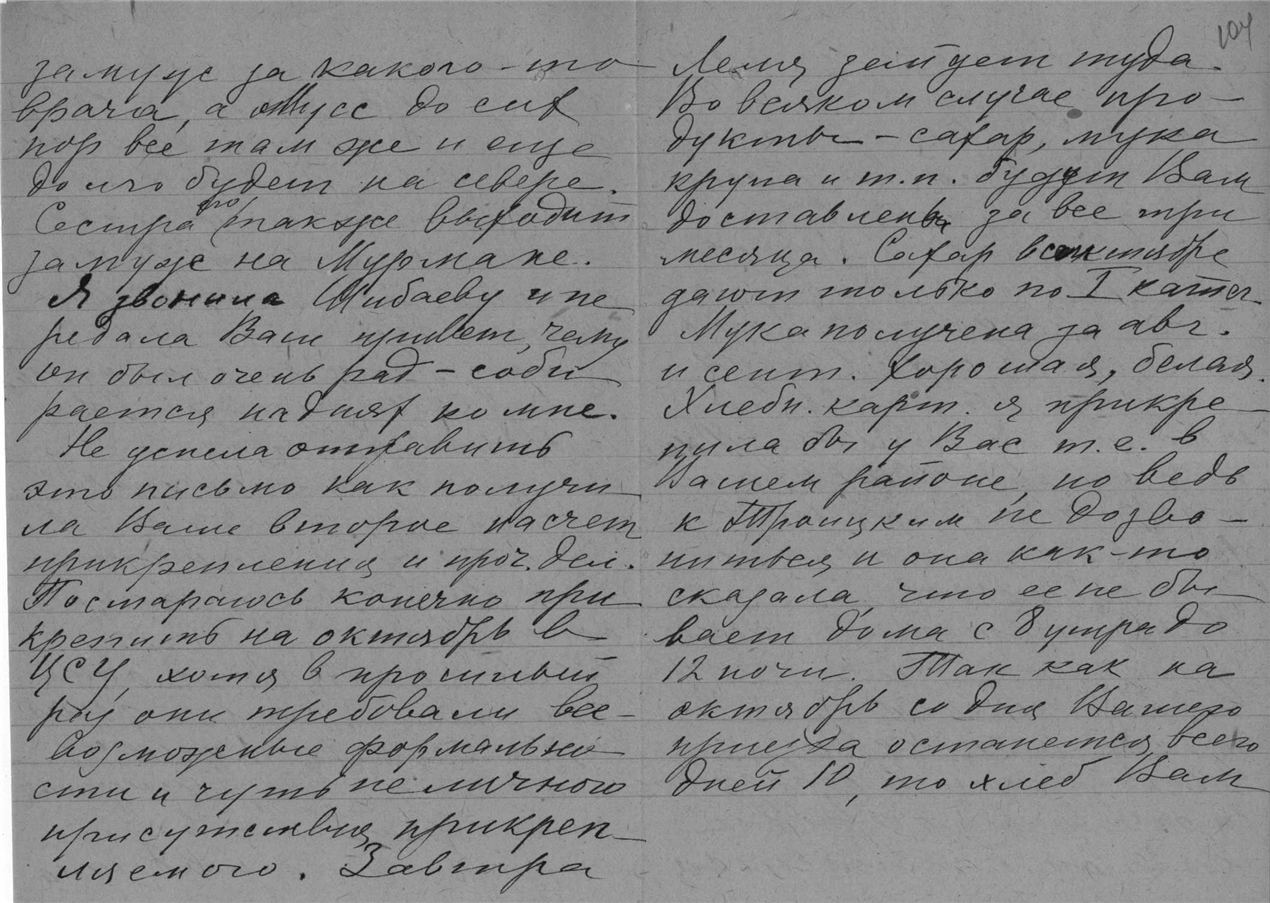 замуж за какого-то
врача, а Мусс до сих
пор все там же и еще
долго будет на севере.
Сестра его также выходит
замуж на Мурмане.
Я звонила Шибаеву и пе
редала Ваш привет, чему
он был очень рад - соби
рается на днях ко мне.
Не успела отправить
это письмо как получи
ла Ваше второе насчет
прикрепления и проч. дел.
Постараюсь конечно при
крепить на октябрь в
ЦСУ, хотя в прошлый
раз они требовали все-
возможные формально
сти и чуть не личного
присутствия прикреп-
ляемого. Завтра
104
Леля зайдет туда.
Во всяком случае про-
дукты - сахар, мука
крупа и т.п. будут Вам
доставлены за все три
месяца. Сахар в октябре
дают только по I катег.
Мука получена за авг.
и сент. хорошая, белая.
Хлебн. карт. я прикре-
пила бы у Вас т.е. в
Вашем районе, но ведь
к Троицким не дозво-
ниться и она как-то
сказала, что ее не бы
вает дома с 8 утра до
12 ночи. Так как на
октябрь со дня Вашего
приезда останется всего
дней 10, то хлеб Вам